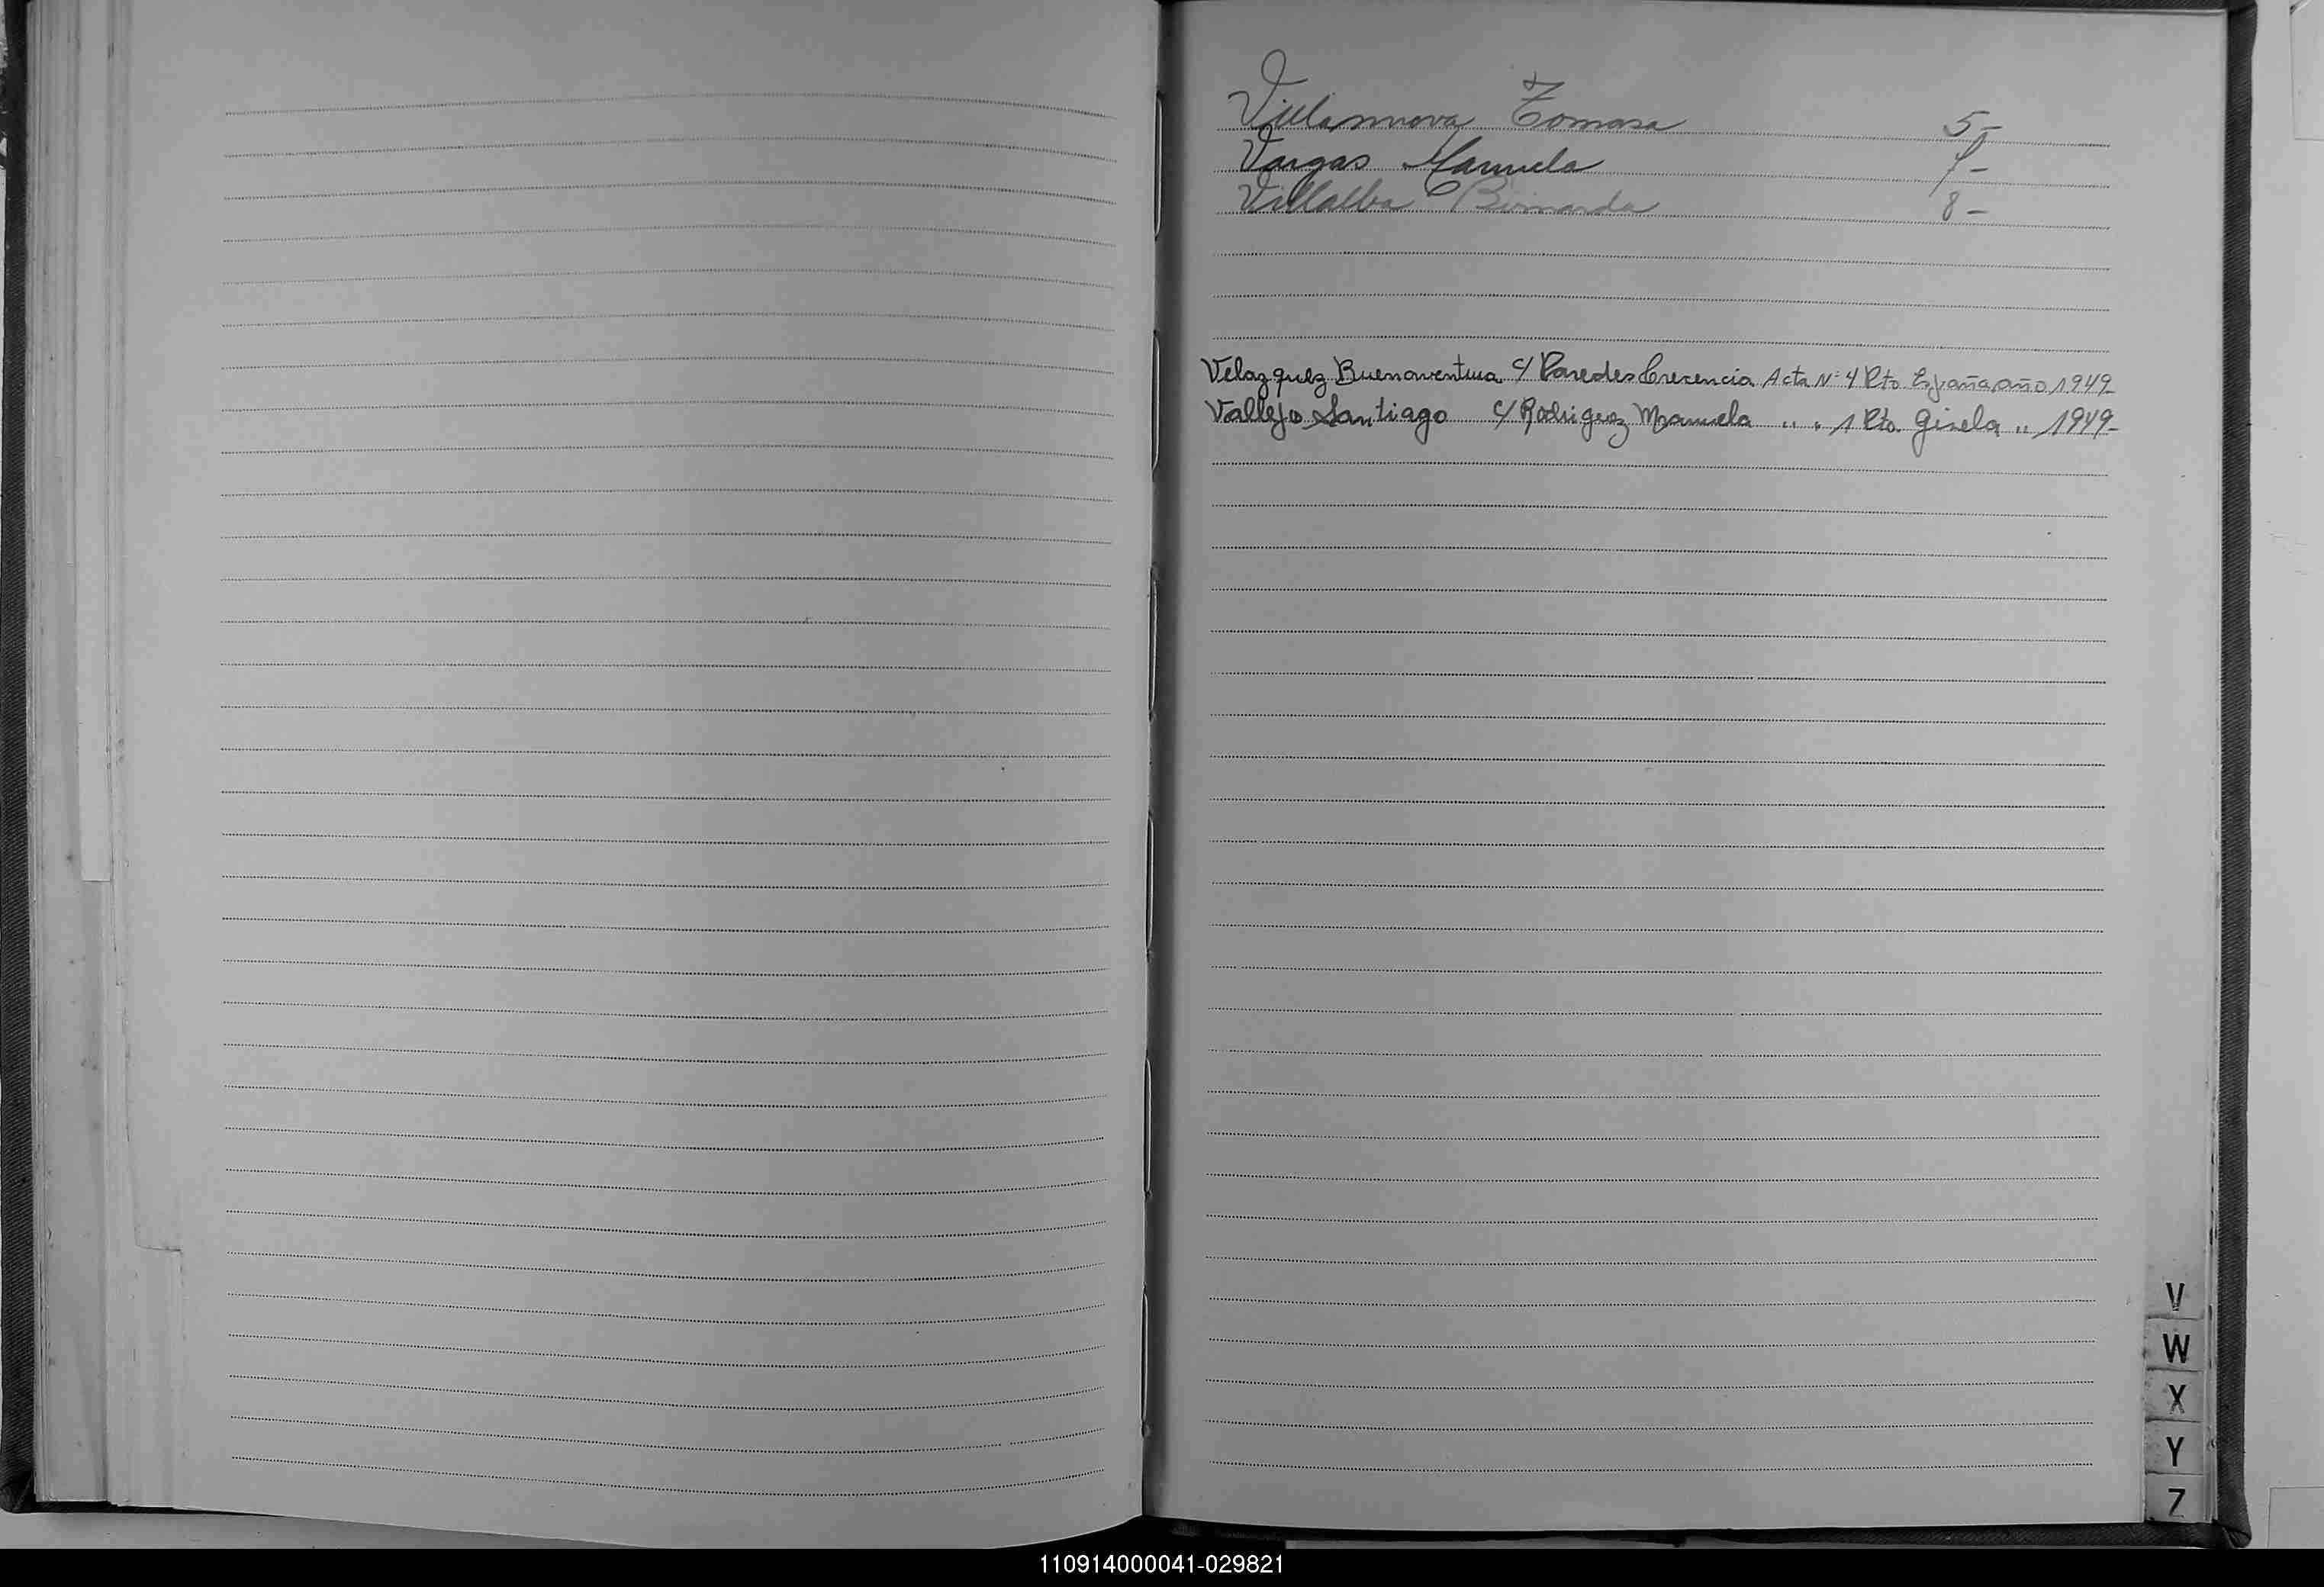 Villanueva Tomasa 5-
Vargas Manuela 7-
Villalba Bernarda 8-
Velazquez Buenaventura c/ Paredes Crecencia Acta Nº 4 Pto España año 1949
Vallejo Santiago c/ Rodriguez Manuela " " 1 Pto. Gisela " 1949-
V
W
X
Y
Z
110914000041-029821